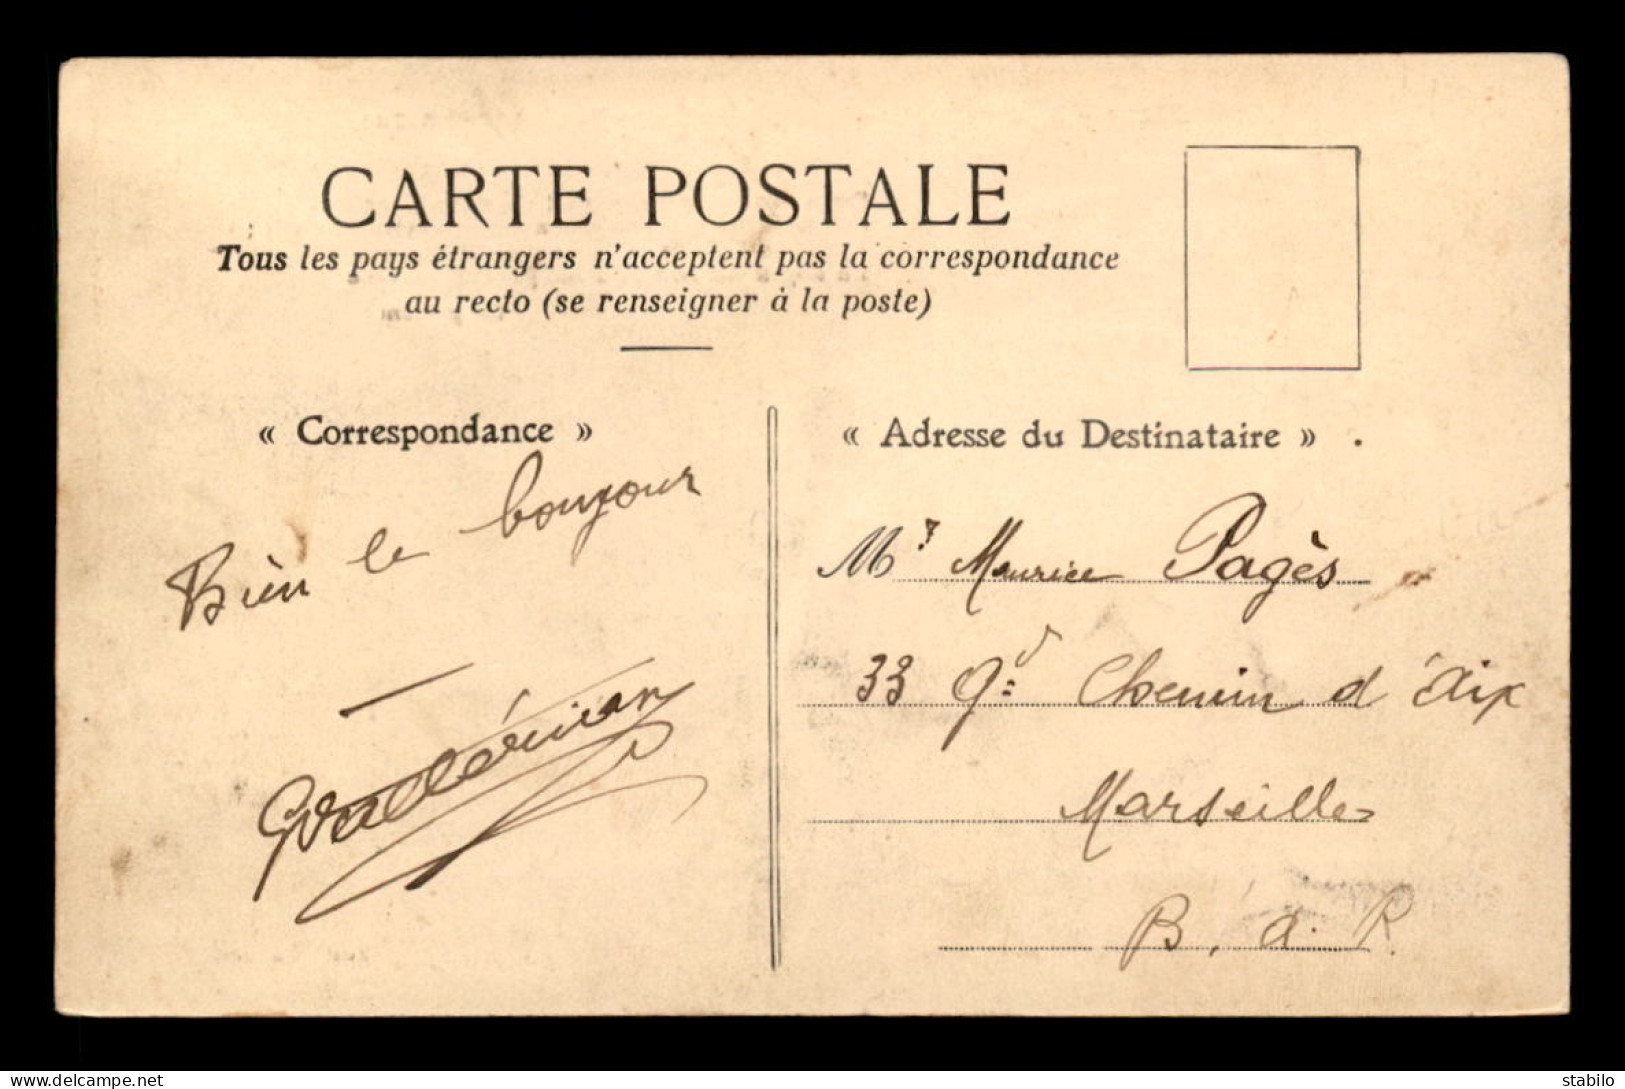 CARTE POSTALE
Tous les pays étrangers n'acceptent pas la correspondance
au recto (se renseigner à la poste)
« Correspondance »
Bien le bonjour
« Adresse du Destinataire »
Mr Maurice Pagès
33 Gd Chemin d'Aix
Marseille
B. d. R.
www.delcampe.net
stabilo